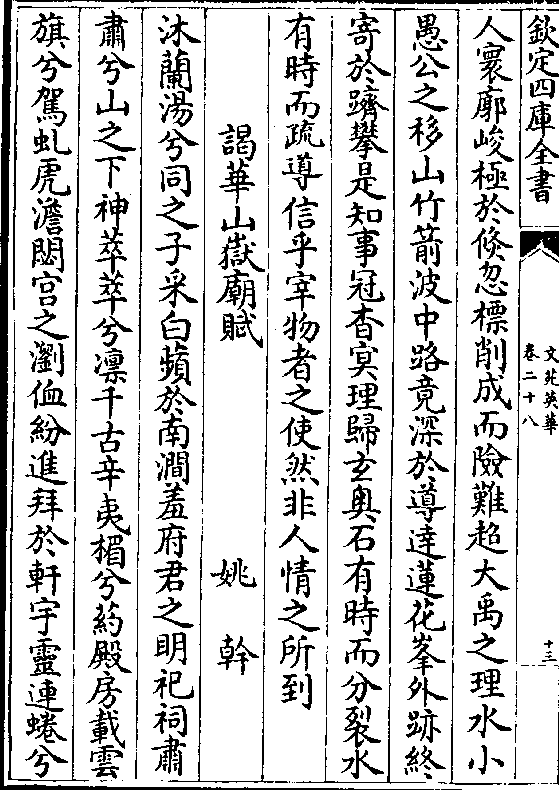 欽定四庫全書
文苑英華
卷二十八
十三
人寰廓峻極於倐忽標削成而險難超大禹之理水小
愚公之移山竹箭波中路竟深於導達蓮花峯外跡終
寄於躋攀是知事冠杳㝠理歸玄奥石有時而分裂水
有時而疏導信乎宰物者之使然非人情之所到
謁華山嶽廟賦
姚幹
沐蘭湯兮同之子采白蘋於南澗羞府君之明祀祠肅
肅兮山之下神萃萃兮凛千古辛夷楣兮葯殿房載雲
旗兮駕虬虎澹閟宫之瀏侐紛進拜於軒宇靈連蜷兮